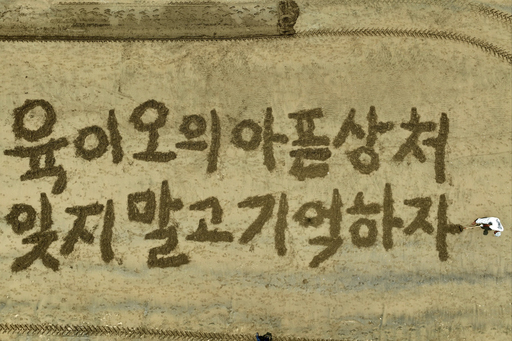 육이오의 아픈상처
잊지 말고 기억하자